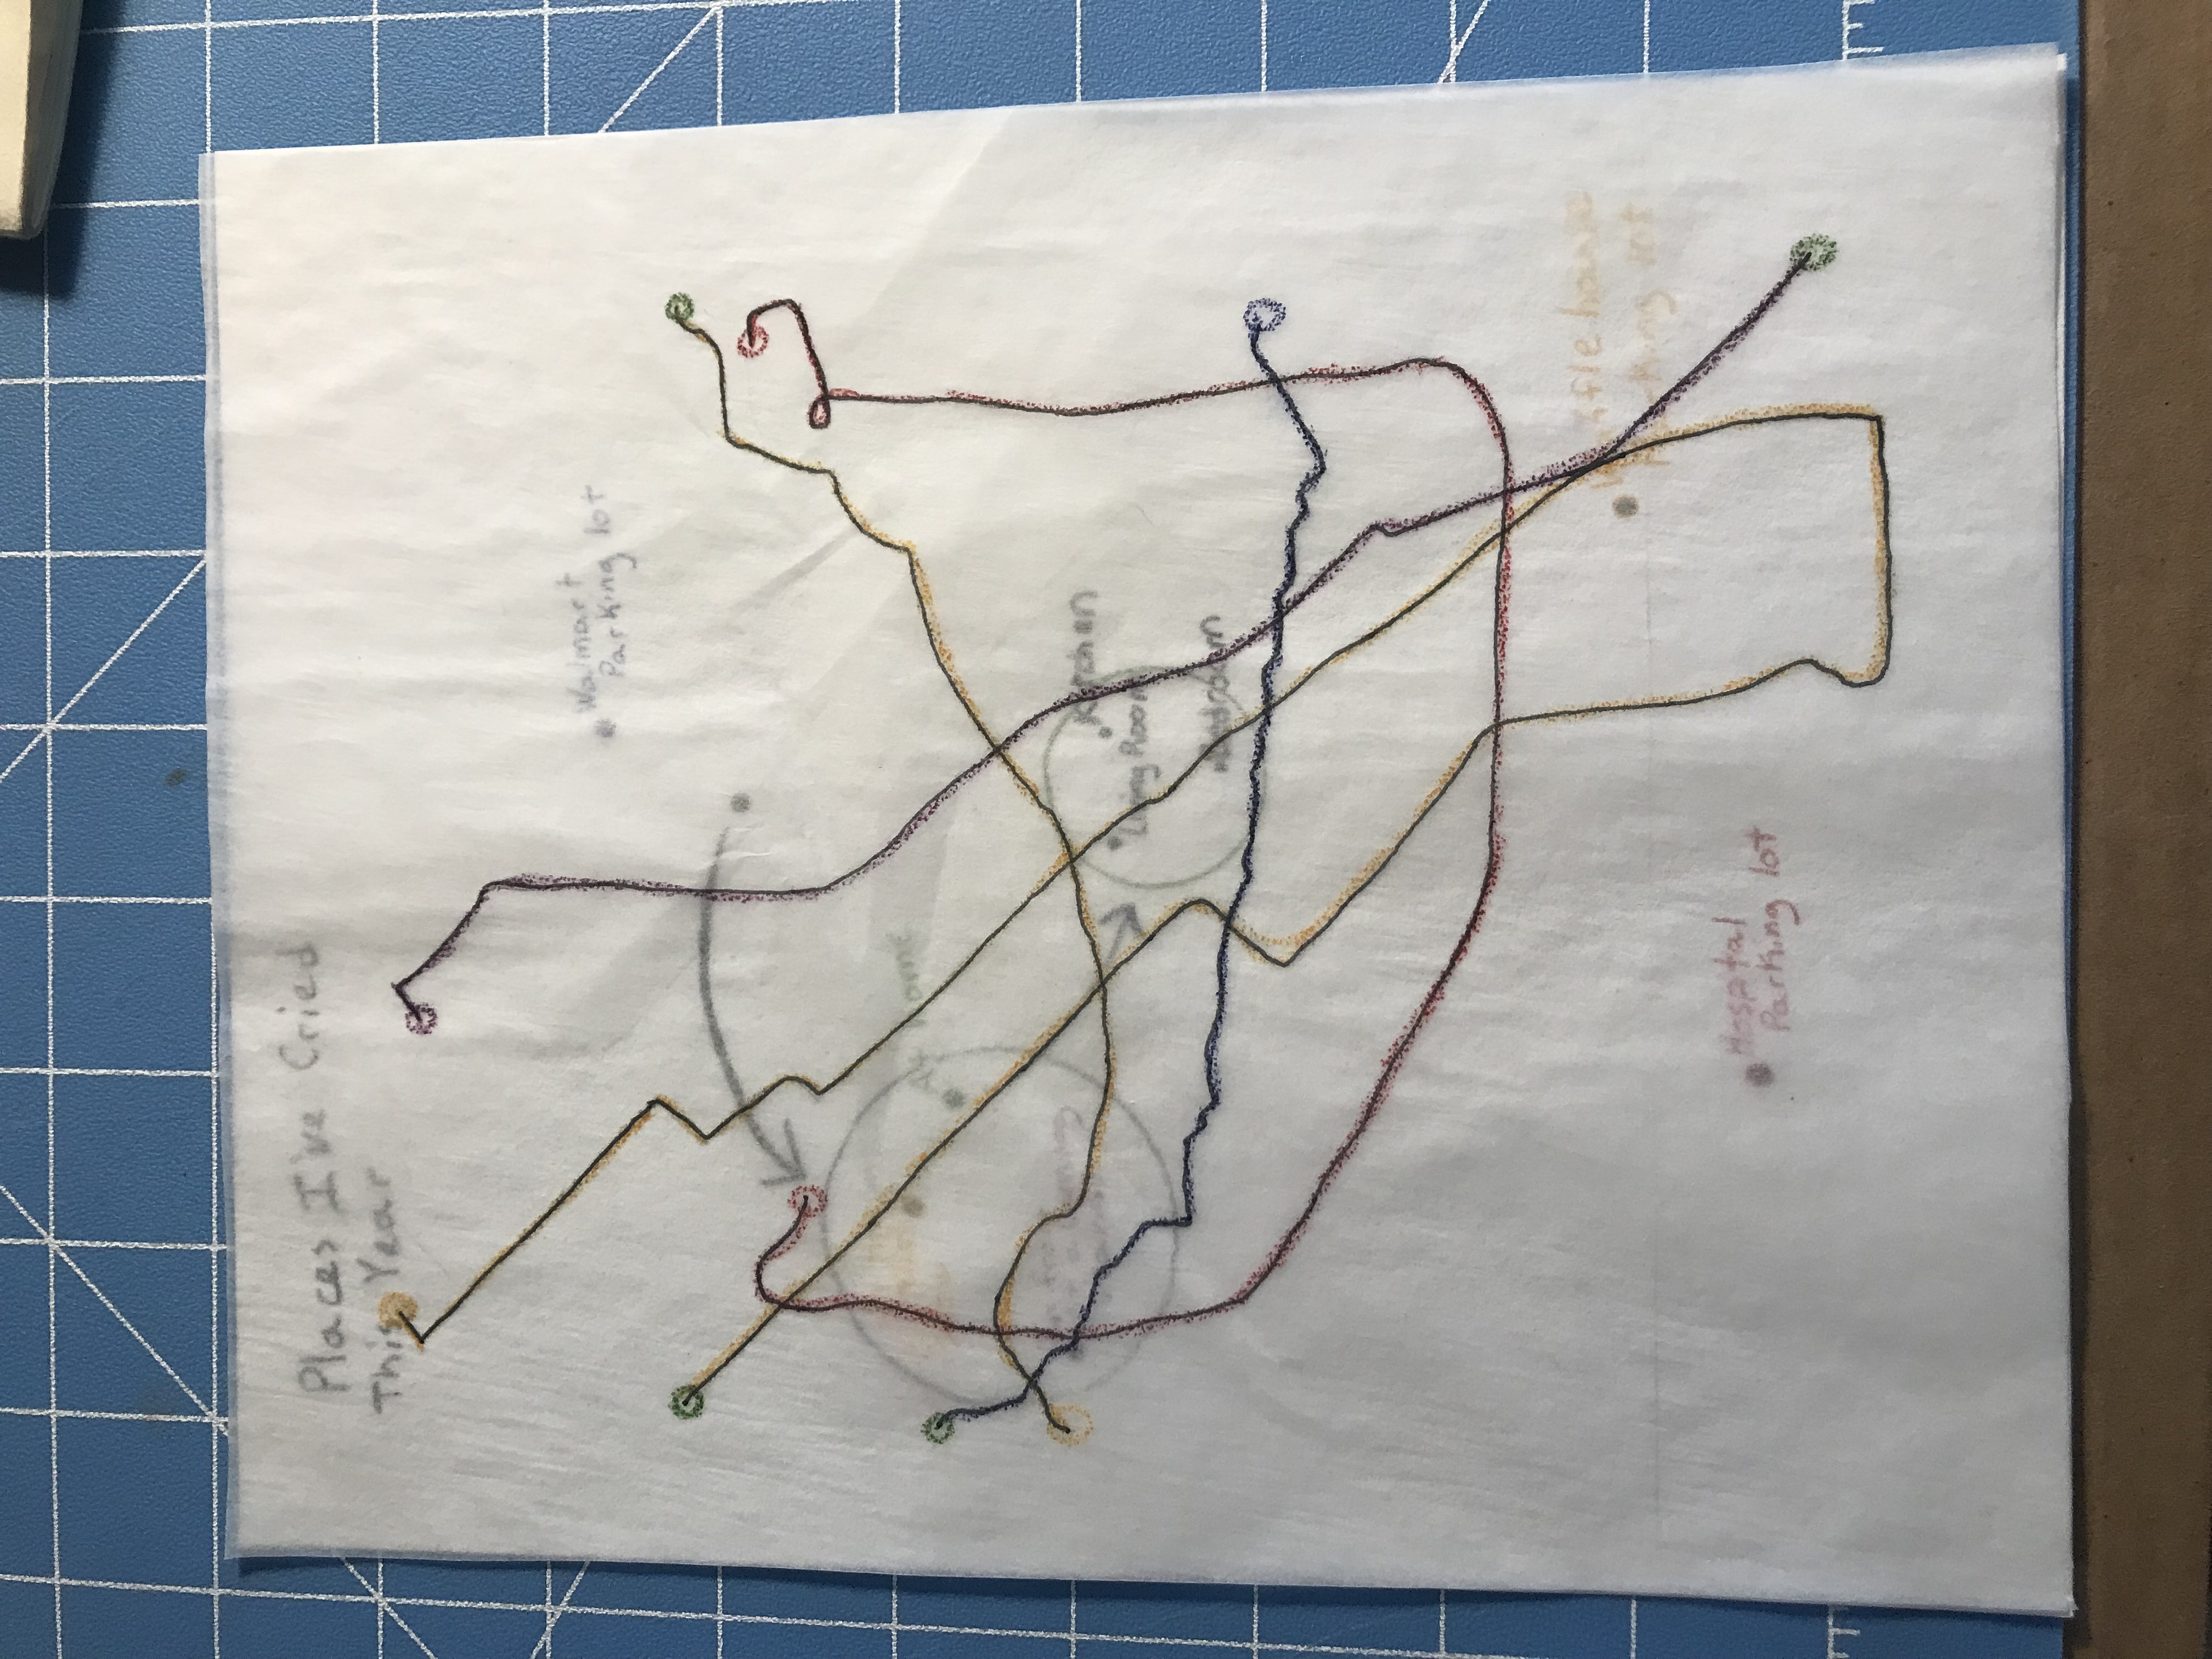 Places I've Cried
This Year
Walmart
Parking lot
At home
Kitchen
Living Room
Bedroom
Waffle house
Parking lot
Hospital
Parking lot